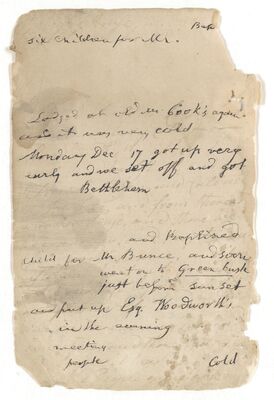 Bap
six children for Mr.
Lodged at old Mr Cook's again
and it was very cold
Monday Dec 17 got up very
early and we set off and got
Bethlehem
and Baptised
child for Mr. Bunce, and soon
went on to Green bush
just before sun set
and put up Esq. Woodworth's,
in the evening
meeting
people Cold